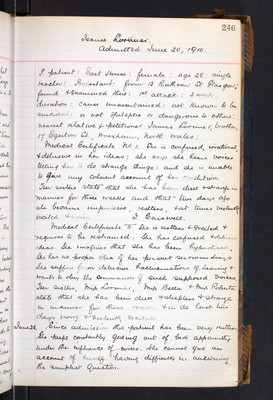 246
Isaac Lorimer.
Admitted June 20, 1910.
P. patient: East House: female: age 28: single
teacher: Protestant: from 13 Ruthven St. Glasgow,
found & examined there: 1st attack: 3 weeks
duration: cause unascertained: not known to be
suicidal: is not epileptic or dangerous to others:
nearest relative & petitioner James Lorimer, brother,
17 Egerton St. Wrexham, North Wales:
Medical Certificate No 1. She is confused, irrational
& delusive in her ideas: she says she hears voices
telling her to do strange things: and she is unable
to give any coherent account of her condition.
Her sisters state that she has been dull & strange in
manner for three weeks and that ten days ago
she became impulsive, restless, & at times violently
excited
Medical Certificate II She is restless & excited &
requires to be restrained. She has confused & delusive
ideas. She imagines that she has been hypnotised.
She has no proper idea of her present surroundings
She suffers from delusive hallucinations of hearing &
wants to obey the commands of such supposed voices
Her sisters, Miss Lorimer, Miss Bella & Miss Roberta
state that she has been dull & sleepless & strange
in manner for three weeks & in the last ten
days noisy & violently excited
June 22. Since admission this patient has been very restless
She keeps constantly getting out of bed apparently
under the influence of voices. She cannot give an
account of herself having difficulty in answering
the simplest question.